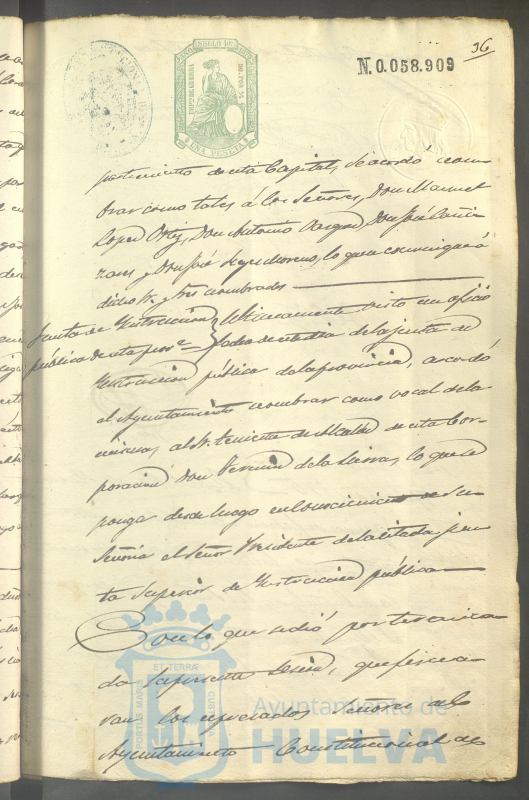 36
N. 0.058.909
UNA PESETA
de esta Capital, se acordó nom-
brar como tales á los Señores, Don Manuel
Lopez Ortiz, Don Antonio Vargas, Don José
y Don José lo que comunique á
dicho Sr. y tres nombrados
Junta de Instruccion
pública de esta prov.ª
Ultimamente visto un oficio
de la junta de
Instruccion pública de la provincia, acordó
el Ayuntamiento nombrar como vocal de la
misma, al Sr. teniente de Alcalde de esta Cor-
poracion Don Fermin de la Sierra, lo que se
ponga desde luego en conocimiento de Su
Señoria el Señor Presidente de la citada jun-
ta Superior de Instruccion pública
Con lo que se dió por termina-
da la presente Sesion, que firma-
ran los espresados Señores del
Ayuntamiento Constitucional de
ET TERRÆ
PORTUS MARIS
CUSTODIA
Ayuntamiento de
HUELVA